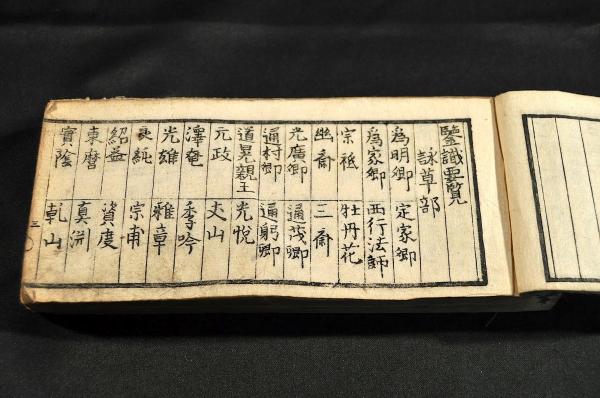 鑒識要覧
詠草部
為明卿 定家卿
為家卿 西行法師
宗祗 牡丹花
幽斎 三斎
光廣卿 通茂卿
通村卿 通躬卿
道晃親王 光悦
元政 丈山
澤菴 季吟
光雄 雅章
宗甫
紹益 資慶
東麿 真渕
實蔭 乾山
三